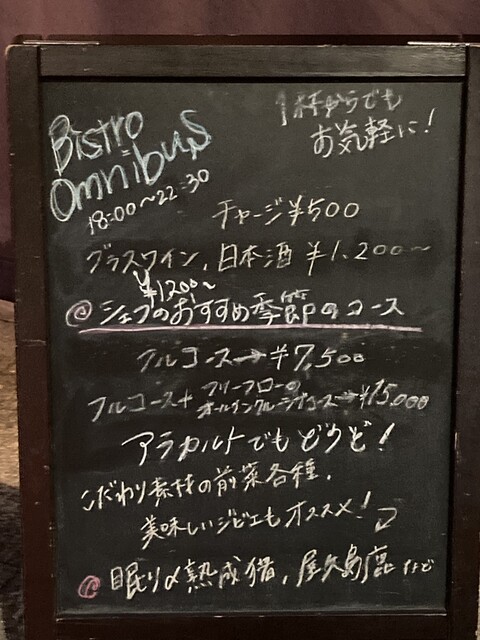 Bistro
Omnibus
18:00〜22:30
1杯からでも
お気軽に!
チャージ¥500
グラスワイン,日本酒 ¥1,200〜
¥1200〜
@シェフのおすすめ季節のコース
フルコース→¥7,500
フルコース+フリーフローの
オールインクルーシブコース→¥15,000
アラカルトでもどうぞ!
こだわり素材の前菜各種,
美味しいジビエもオススメ!
@眠り〆熟成猪,屋久島鹿 など